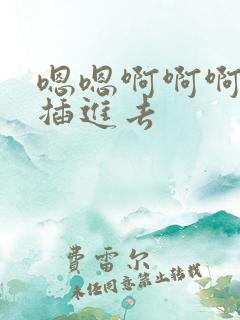 嗯嗯啊啊啊
插进去
费雷尔
未经同意禁止转载